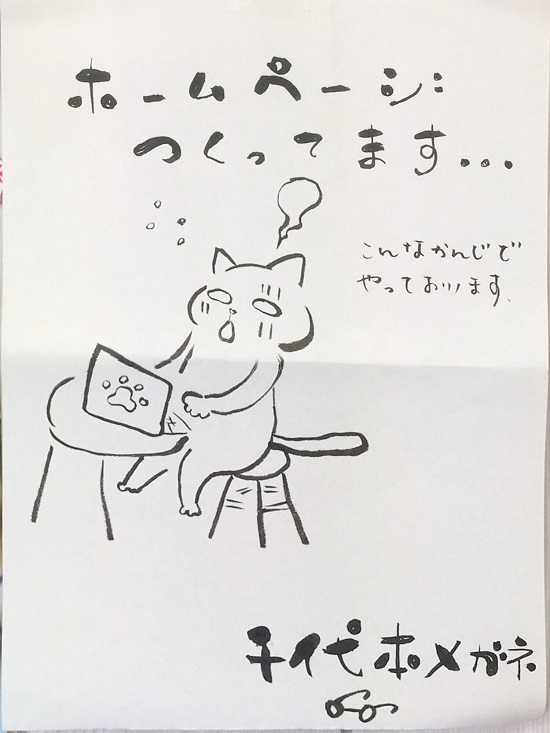 ホームページ:
つくってます...
こんなかんじで
やっております。
千代ホメガネ